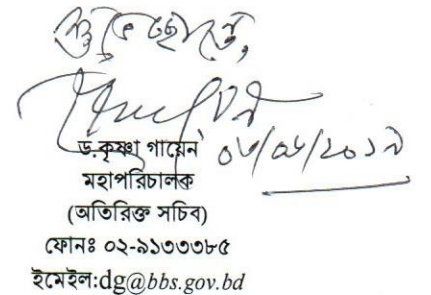 শুভেচ্ছান্তে,
ড.কৃষ্ণা গায়েন
মহাপরিচালক
(অতিরিক্ত সচিব)
ফোনঃ ০২-৯১৩৩৩৮৫
ইমেইল:dg@bbs.gov.bd